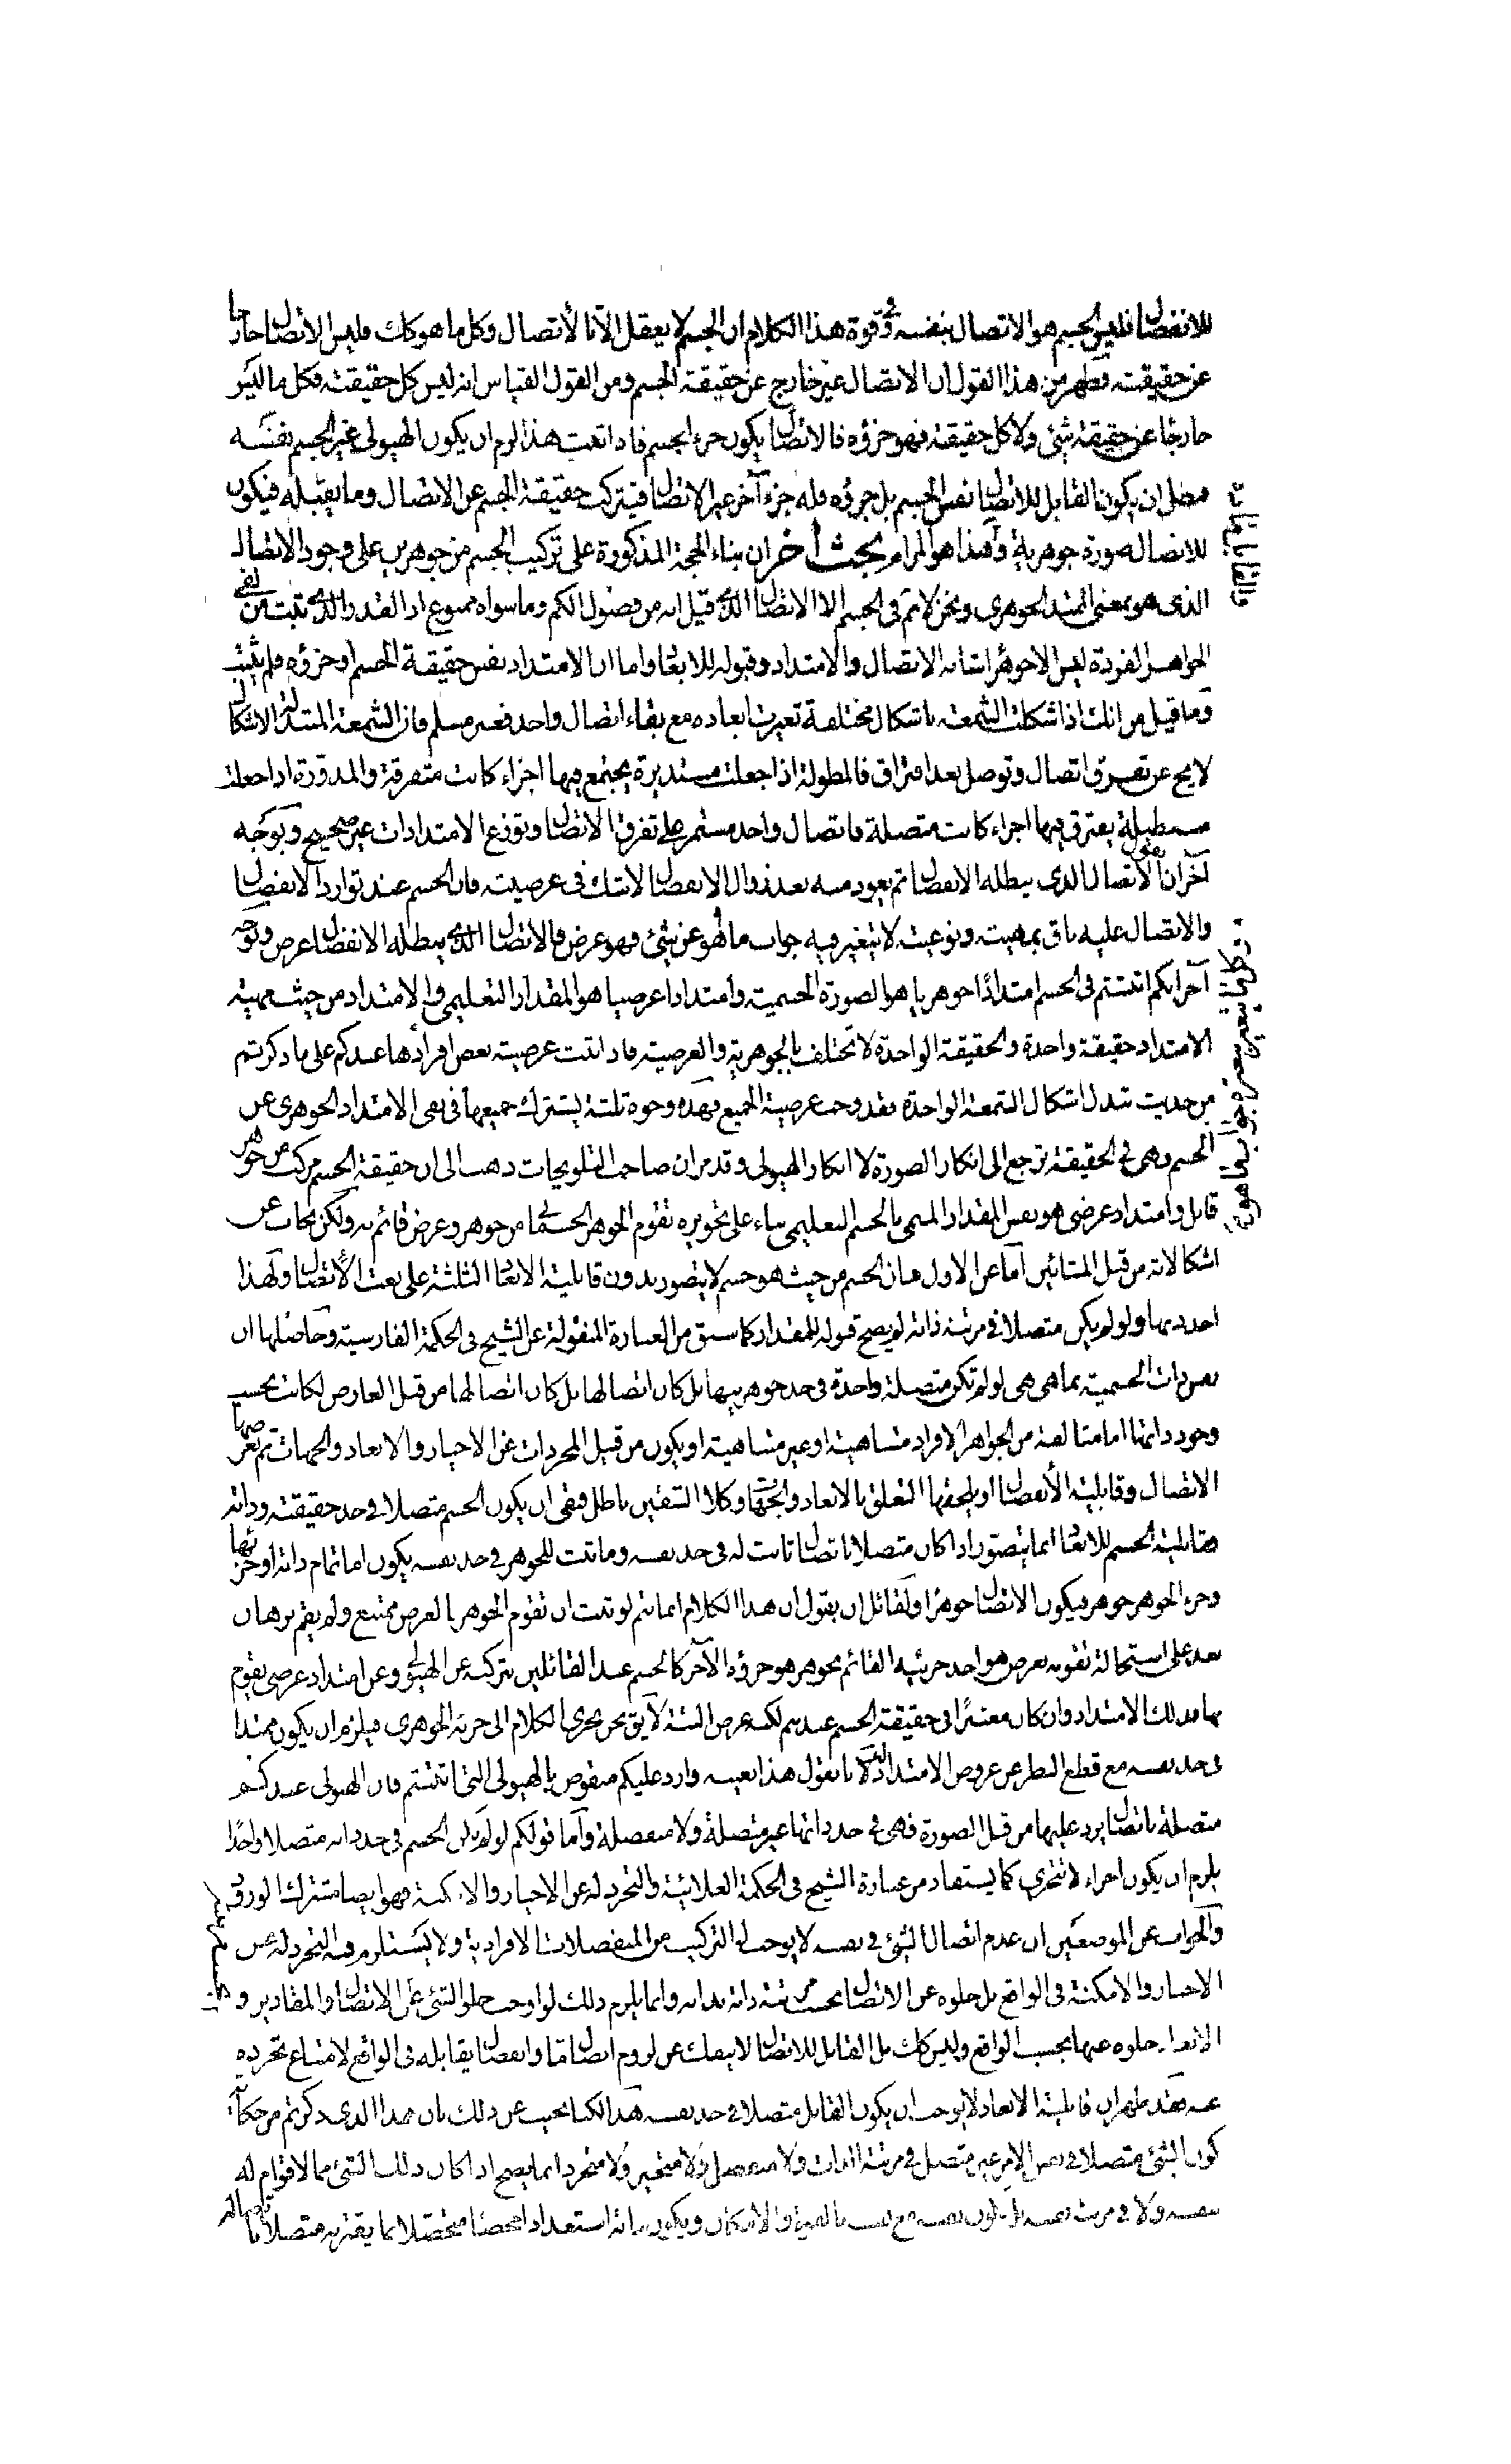 للانفصال فليس الجسم هو الاتصال بنفسه وفى قوة هذا الكلام ان الجسم لا يعقل الا بالأتصال وكل ما هو كك فليس الاتصال خارجا
عن حقيقته فظهر من هذا القول ان الاتصال غير خارج عن حقيقة الجسم ومن القول القياس انه ليس كل حقيقته فكل ما ليس
خارجا عن حقيقة شئ ولا كل حقيقة فهو جزؤه فالاتصال يكون جزء الجسم فاذا تعين هذا لزم ان يكون الهيولى غير الجسم بنفسه
فبطل ان يكون القابل للاتصال نفس الجسم بل جزؤه فله جزء آخر غير الاتصال فيتركب حقيقة الجسم عن الاتصال وما يقبله فيكون
للاتصال صورة جوهرية وهذا هو المرام بحث أخر ان بناء الحجة المذكورة على تركيب الجسم من جوهرين على وجود الاتصال
الذى هو بمعنى الممتد الجوهرى ونحن لا نم فى الجسم الا الاتصال الذى قيل انه من فصول الكم وما سواه ممنوع اذ القدر الذى ثبت من نفى
الجواهر الفردة ليس الا جوهرا شأنه الاتصال والامتداد وقبوله للابعاد واما ان الامتداد نفس حقيقة الجسم او جزؤه فلم يثبت
وما قيل من انك اذا شكلت الشمعة باشكال مختلفة تغيرت ابعاده مع بقاء اتصال واحد فغير مسلم فان الشمعة المتبدلة الاشكال
لا يخ عن تفرق اتصال وتوصل بعد افتراق فالمطولة اذا جعلت مستديرة يجتمع فيها اجزاء كانت متفرقة والمدورة اذا جعلت
مستطيلة يفترق فيها اجزاء كانت متصلة فاتصال واحد مستمر على تفرق الاتصال وتوزع الامتدادات غير صحيح وبوجه
آخر نقول ان الأتصال الذى يبطله الانفصال ثم يعود مثله بعد زوال الانفصال لا شك فى عرضيته فان الجسم عند توارد الانفصال
والاتصال عليه باق بمهيته ونوعيته لا يتغير فيه جواب ما هو عن شئ فهو عرض فالاتصال الذى يبطله الانفصال عرض وبوجه
آخر انكم اثبتتم فى الجسم امتدادا جوهريا هو الصورة الجسمية وامتدادا عرضيا هو المقدار التعليمى والامتداد من حيث مهية
الامتداد حقيقة واحدة والحقيقة الواحدة لا تختلف بالجوهرية والعرضية فاذا ثبت عرضية بعض افرادها عندكم على ما ذكرتم
من حديث تبدل اشكال الشمعة الواحدة فقد وجب عرضية الجميع فهذه وجوه ثلثة يشترك جميعها فى نفى الامتداد الجوهرى عن
الجسم وهى فى الحقيقة ترجع الى انكار الصورة لا انكار الهيولى وقد مر ان صاحب التلويحات ذهب الى ان حقيقة الجسم مركب من جوهر
قابل وامتداد عرضى هو نفس المقدار المسمى بالجسم التعليمى بناء على تجويزه تقوم الجوهر الجسمانى من جوهر وعرض قائم به ولكن يجاب عن
اشكالاته من قبل المشائين اما عن الاول فبان الجسم من حيث هو جسم لا يتصور بدون قابلية الابعاد الثلثة على نعت الأتصال ولهذا
احدد بها ولو لم يكن متصلا فى مرتبة ذاته لم يصح قبوله للمقدار كما سبق من العبارة المنقولة عن الشيخ فى الحكمة الفارسية وحاصلها ان
نفس ذات الجسمية بما هى هى لو لم تكن متصلة واحدة فى حد جوهريتها بل كان اتصالها بل كان اتصالها من قبل العارض لكانت بحسب
وجود ذاتها اما متالفة من الجواهر الافراد متناهية او غير متناهية او يكون من قبيل المجردات عن الاحياز والابعاد والجهات ثم يعرضها
الاتصال وقابلية الأنفصال او يلحقها التعلق بالابعاد والجهات وكلا الشقين باطل فبقى ان يكون الجسم متصلا فى حد حقيقته وذاته
فقابلية الجسم للابعاد انما يتصور اذا كان متصلا باتصال ثابت له فى حد نفسه وما ثبت للجوهر فى حد نفسه يكون اما تمام ذاته او جزئها
وجزء الجوهر جوهر فيكون الاتصال جوهرا ولقائل ان يقول ان هذا الكلام انما يتم لو ثبت ان تقوم الجوهر بالعرض ممتنع ولم يقم برهان
بعد على استحالة تقومه بعرض هو احد جزئيه القائم بجوهر هو جزؤه الآخر كالجسم عند القائلين بتركبه عن الهيولى وعن امتداد عرضى يقوم
بها فذلك الامتداد وان كان معتبرا فى حقيقة الجسم عندهم لكنه عرض البتة لا يق نحن نجرى الكلام الى جزئه الجوهرى فيلزم ان يكون ممتدا
فى حد نفسه مع قطع النظر عن عروض الامتداد له لانا نقول هذا بعينه وارد عليكم منقوض بالهيولى التى اثبتتم فان الهيولى عندكم
متصلة باتصال يرد عليها من قبل الصورة فهى فى حد ذاتها غير متصلة ولا منفصلة وأما قولكم لو لم يكن الجسم فى حد ذاته متصلا واحدا
يلزم ان يكون اجزاء لا تتجزى كما يستفاد من عبارة الشيخ فى الحكمة العلائية والتجرد له عن الاحياز والامكنة فهو ايضا مشترك الورود
والجواب عن الموضعين ان عدم اتصال الشئ فى نفسه لا يوجب له التركيب من المنفصلات الافرادية ولا يستلزم فيه التجرد له عن
الاحياز والامكنة فى الواقع بل خلوه عن الاتصال بحسب مرتبة ذاته بذاته وانما يلزم ذلك لو اوجب خلو الشئ عن الاتصال والمقادير و
الابعاد خلوه عنها بحسب الواقع وليس كك بل القابل للاتصال لا ينفك عن لزوم اتصال ما وانفصال يقابله فى الواقع لامتناع تجرده
عنه فقد ظهر ان قابلية الابعاد لا يوجب ان يكون القابل متصلا فى حد نفسه هذا لكنا نجيب عن ذلك بان هذا الذى ذكرتم من جواز
كون الشئ متصلا فى نفس الامر غير متصل فى مرتبة الذات ولا منفصل ولا متحيز ولا متجرد انما يصح اذا كان ذلك الشئ مما لا قوام له
بنفسه ولا فى مرتبة نفسه بل يكون نفسه مع نفسه بالقوة والامكان ويكون ذاته استعدادا محضا متحصلا بما يقترنه متصلا باتصاله